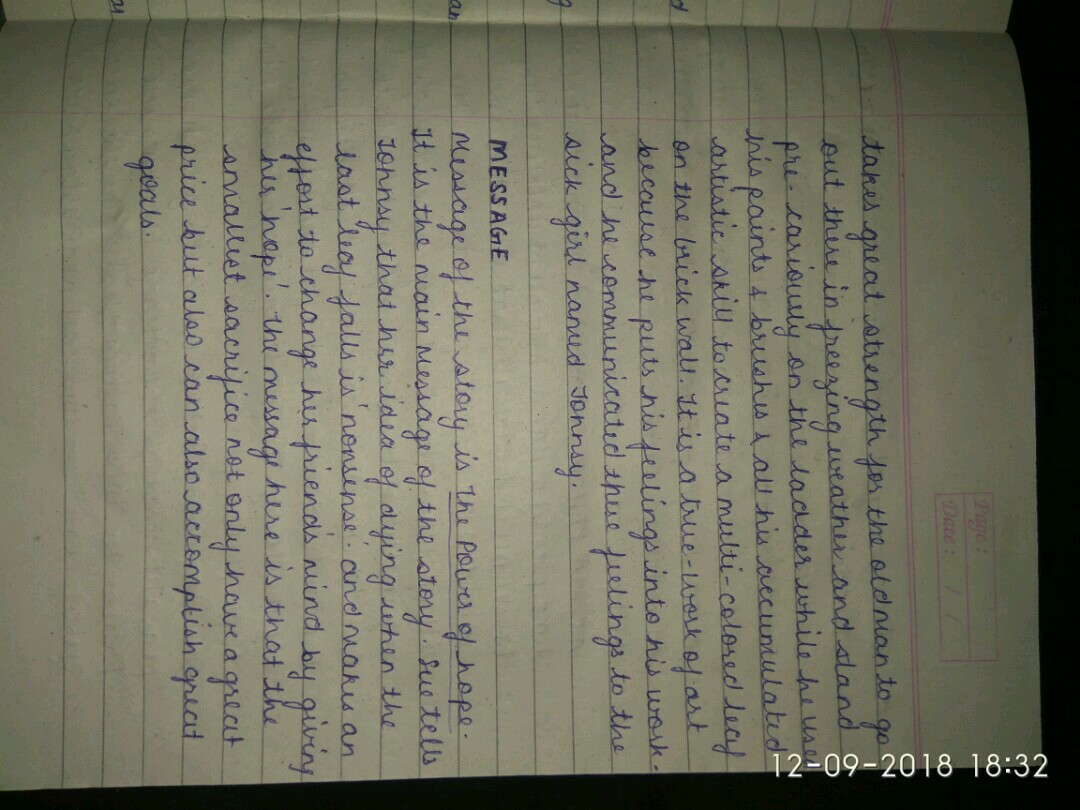 Page :
Date : / /
takes great strength for the old man to go
out there in freezing weather and stand
pre-cariously on the ladder while he uses
his paints & brushes & all his accumulated
artistic skill to create a multi-colored leaf
on the brick wall. It is a true-work of art
because he puts his feelings into his work.
and he communicated these feelings to the
sick girl named Johnsy.
MESSAGE
Message of the story is The Power of hope.
It is the main Message of the story. Sue tells
Johnsy that her idea of dying when the
last leaf falls is 'nonsense'. and makes an
effort to change her friend's mind by giving
her 'hope'. The message here is that the
smallest sacrifice not only have a great
price but also can also accomplish great
goals.
12-09-2018 18:32
g
an